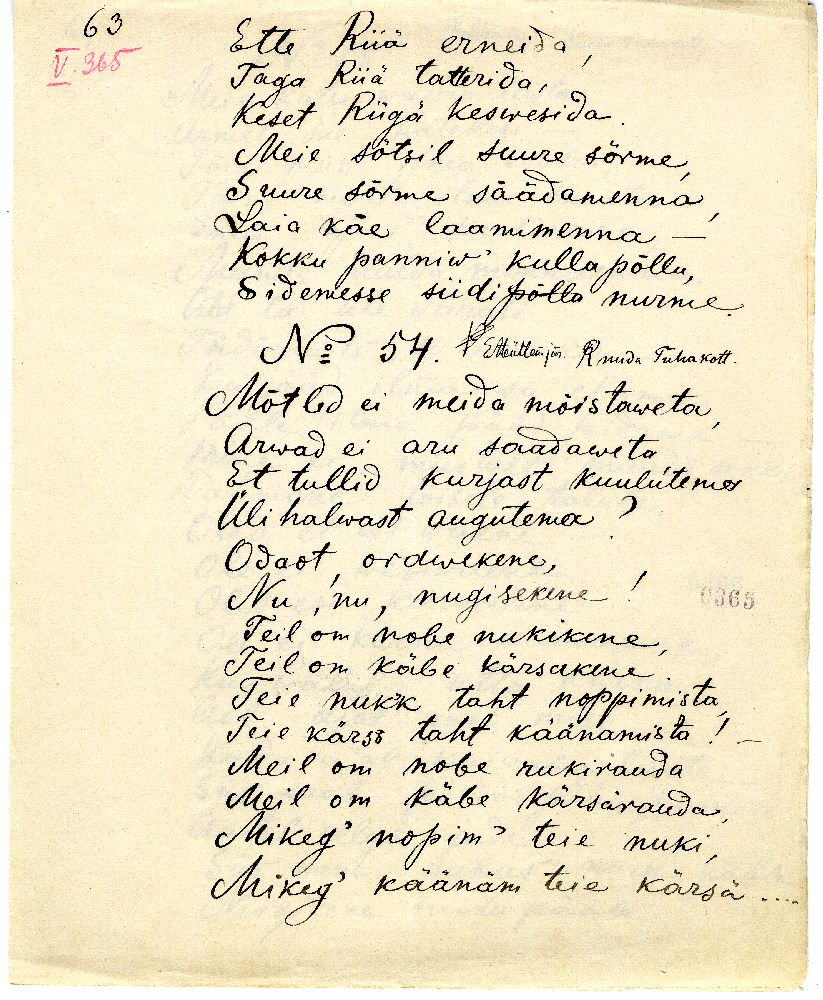 63
V. 365
Ette Riiä erneida,
Taga Riiä tatterida,
Keset Riigä keswesida.
Meie sõtsil suure sõrme,
Suure sõrme säädamenna,
Laia käe laamimenna —
Kokku panniw' kulla põllu,
Sidemesse siidi põllo nurme.
№ 54. R nuida Tuhakott.
Mõtled ei meida mõistaweta,
Arwad ei aru saadaweta
Et tullid kurjast kuulutema
Üli halwast augutema?
Odaot, ordwekene,
Nu, nu, nugisekene!
Teil om nobe nukikene,
Teil om käbe kärsakene.
Teie nukk taht noppimista,
Teie kärss taht käänamista! —
Meil om nobe nukirauda
Meil om käbe kärsärauda,
Mikeg' nopim' teie nuki,
Mikeg' käänäm teie kärsä ....
0365